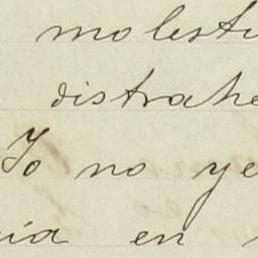 molestu
distrahe
Yo no ye
ia en